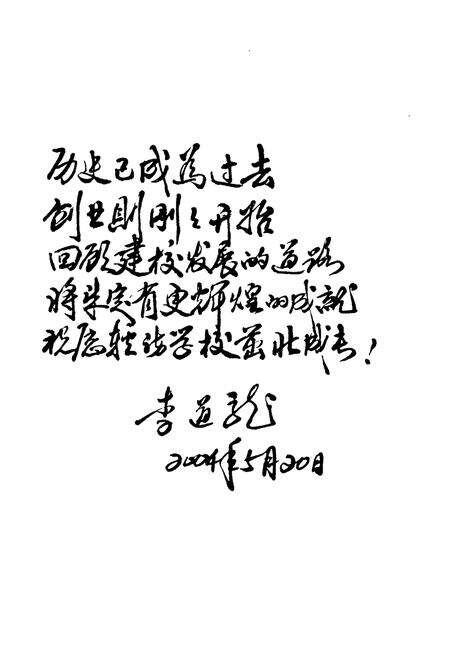 历史已成為过去
创业则刚々开始
回顾建校发展的道路
将来定有更辉煌的成就
祝愿轻纺学校茁壮成长！
李道龙
2004年5月20日